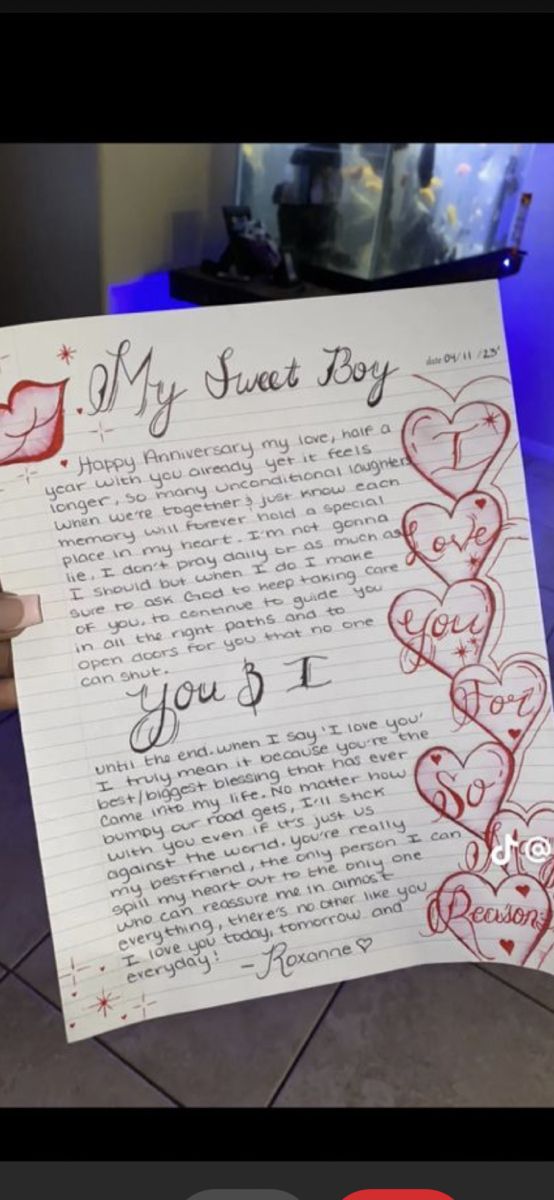 My Sweet Boy
date 04/11/23'
Happy Anniversary my love, half a
year with you already yet it feels
longer, so many unconditional laughters
when we're together & just know each
memory will forever hold a special
place in my heart. I'm not gonna
lie, I don't pray daily or as much as
I should but when I do I make
sure to ask God to keep taking care
of you, to continue to guide you
in all the right paths and to
open doors for you that no one
can shut.
You & I
until the end. when I say 'I love you'
I truly mean it because you're the
best/biggest blessing that has ever
came into my life. No matter how
bumpy our road gets, I'll stick
with you even if it's just us
against the world. you're really
my bestfriend, the only person I can
spill my heart out to the only one
who can reassure me in almost
everything, there's no other like you
I love you today, tomorrow and
everyday!
-Roxanne♡
I
Love
You
For
So
Reasons
@